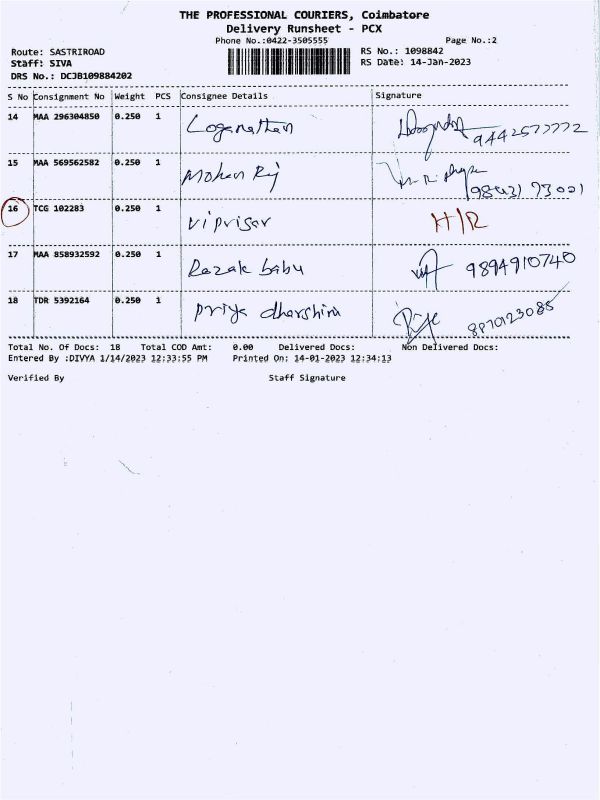 THE PROFESSIONAL COURIERS, Coimbatore
Delivery Runsheet - PCX
Phone No.:0422-3505555 Page No.:2
Route: SASTRIROAD RS No.: 1098842
Staff: SIVA RS Date: 14-Jan-2023
DRS No.: DCJB109884202
S No Consignment No Weight PCS Consignee Details Signature
14 MAA 296304850 0.250 1 Loganathan 9442577772
15 MAA 569562582 0.250 1 Mohan Raj
16 TCG 102283 0.250 1 H/R
17 MAA 858932592 0.250 1 Razak babu 9894910740
18 TDR 5392164 0.250 1 Priya dharshini
Total No. Of Docs: 18 Total COD Amt: 0.00 Delivered Docs: Non Delivered Docs:
Entered By :DIVYA 1/14/2023 12:33:55 PM Printed On: 14-01-2023 12:34:13
Verified By Staff Signature